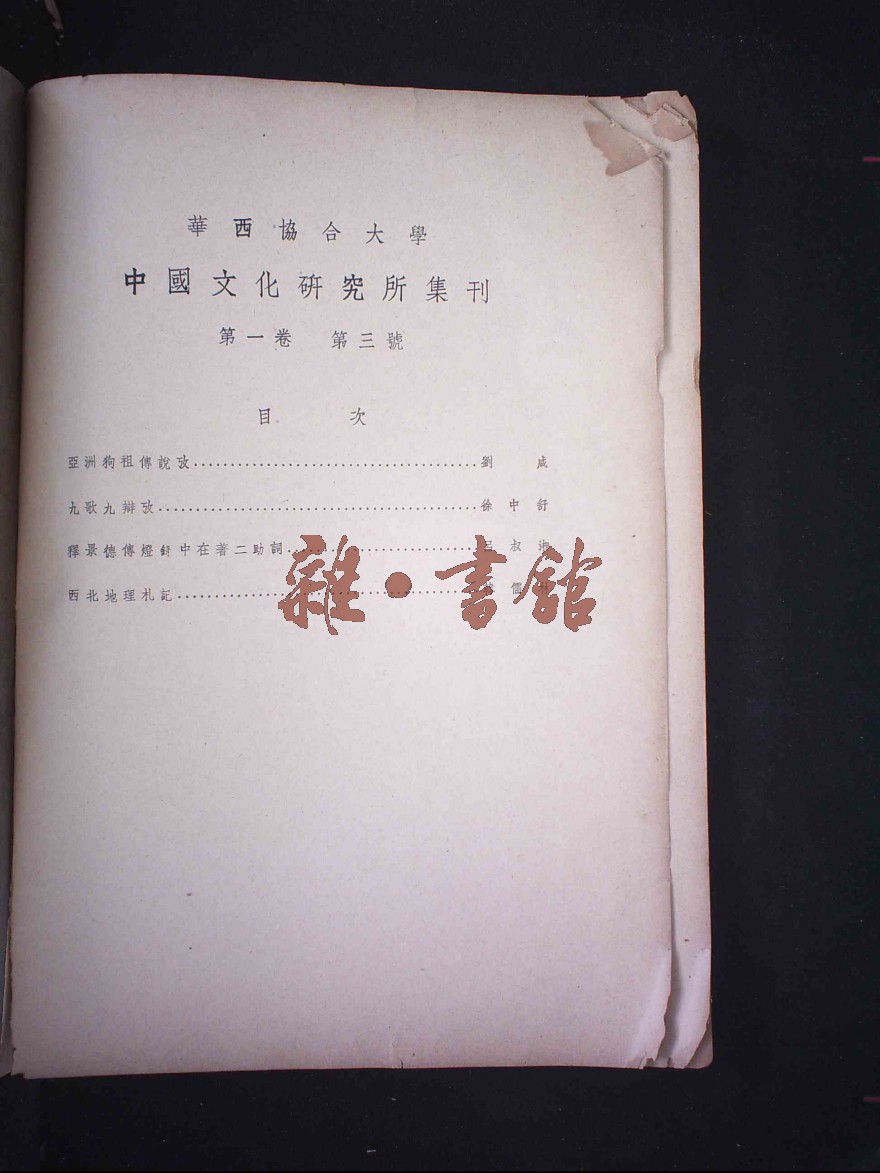 華西協合大學
中國文化研究所集刊
第一卷 第三號
目 次
亞洲狗祖傳說攷......................................劉 咸
九歌九辯攷...........................................徐中舒
釋景德傳燈錄中在著二助詞.........................呂叔湘
西北地理札記.........................................儒
雜·書館